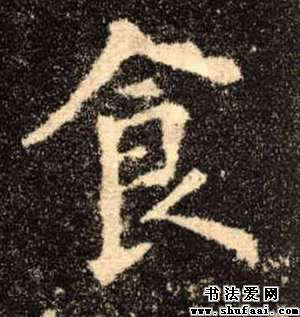 食
书法爱网
www.shufaai.com